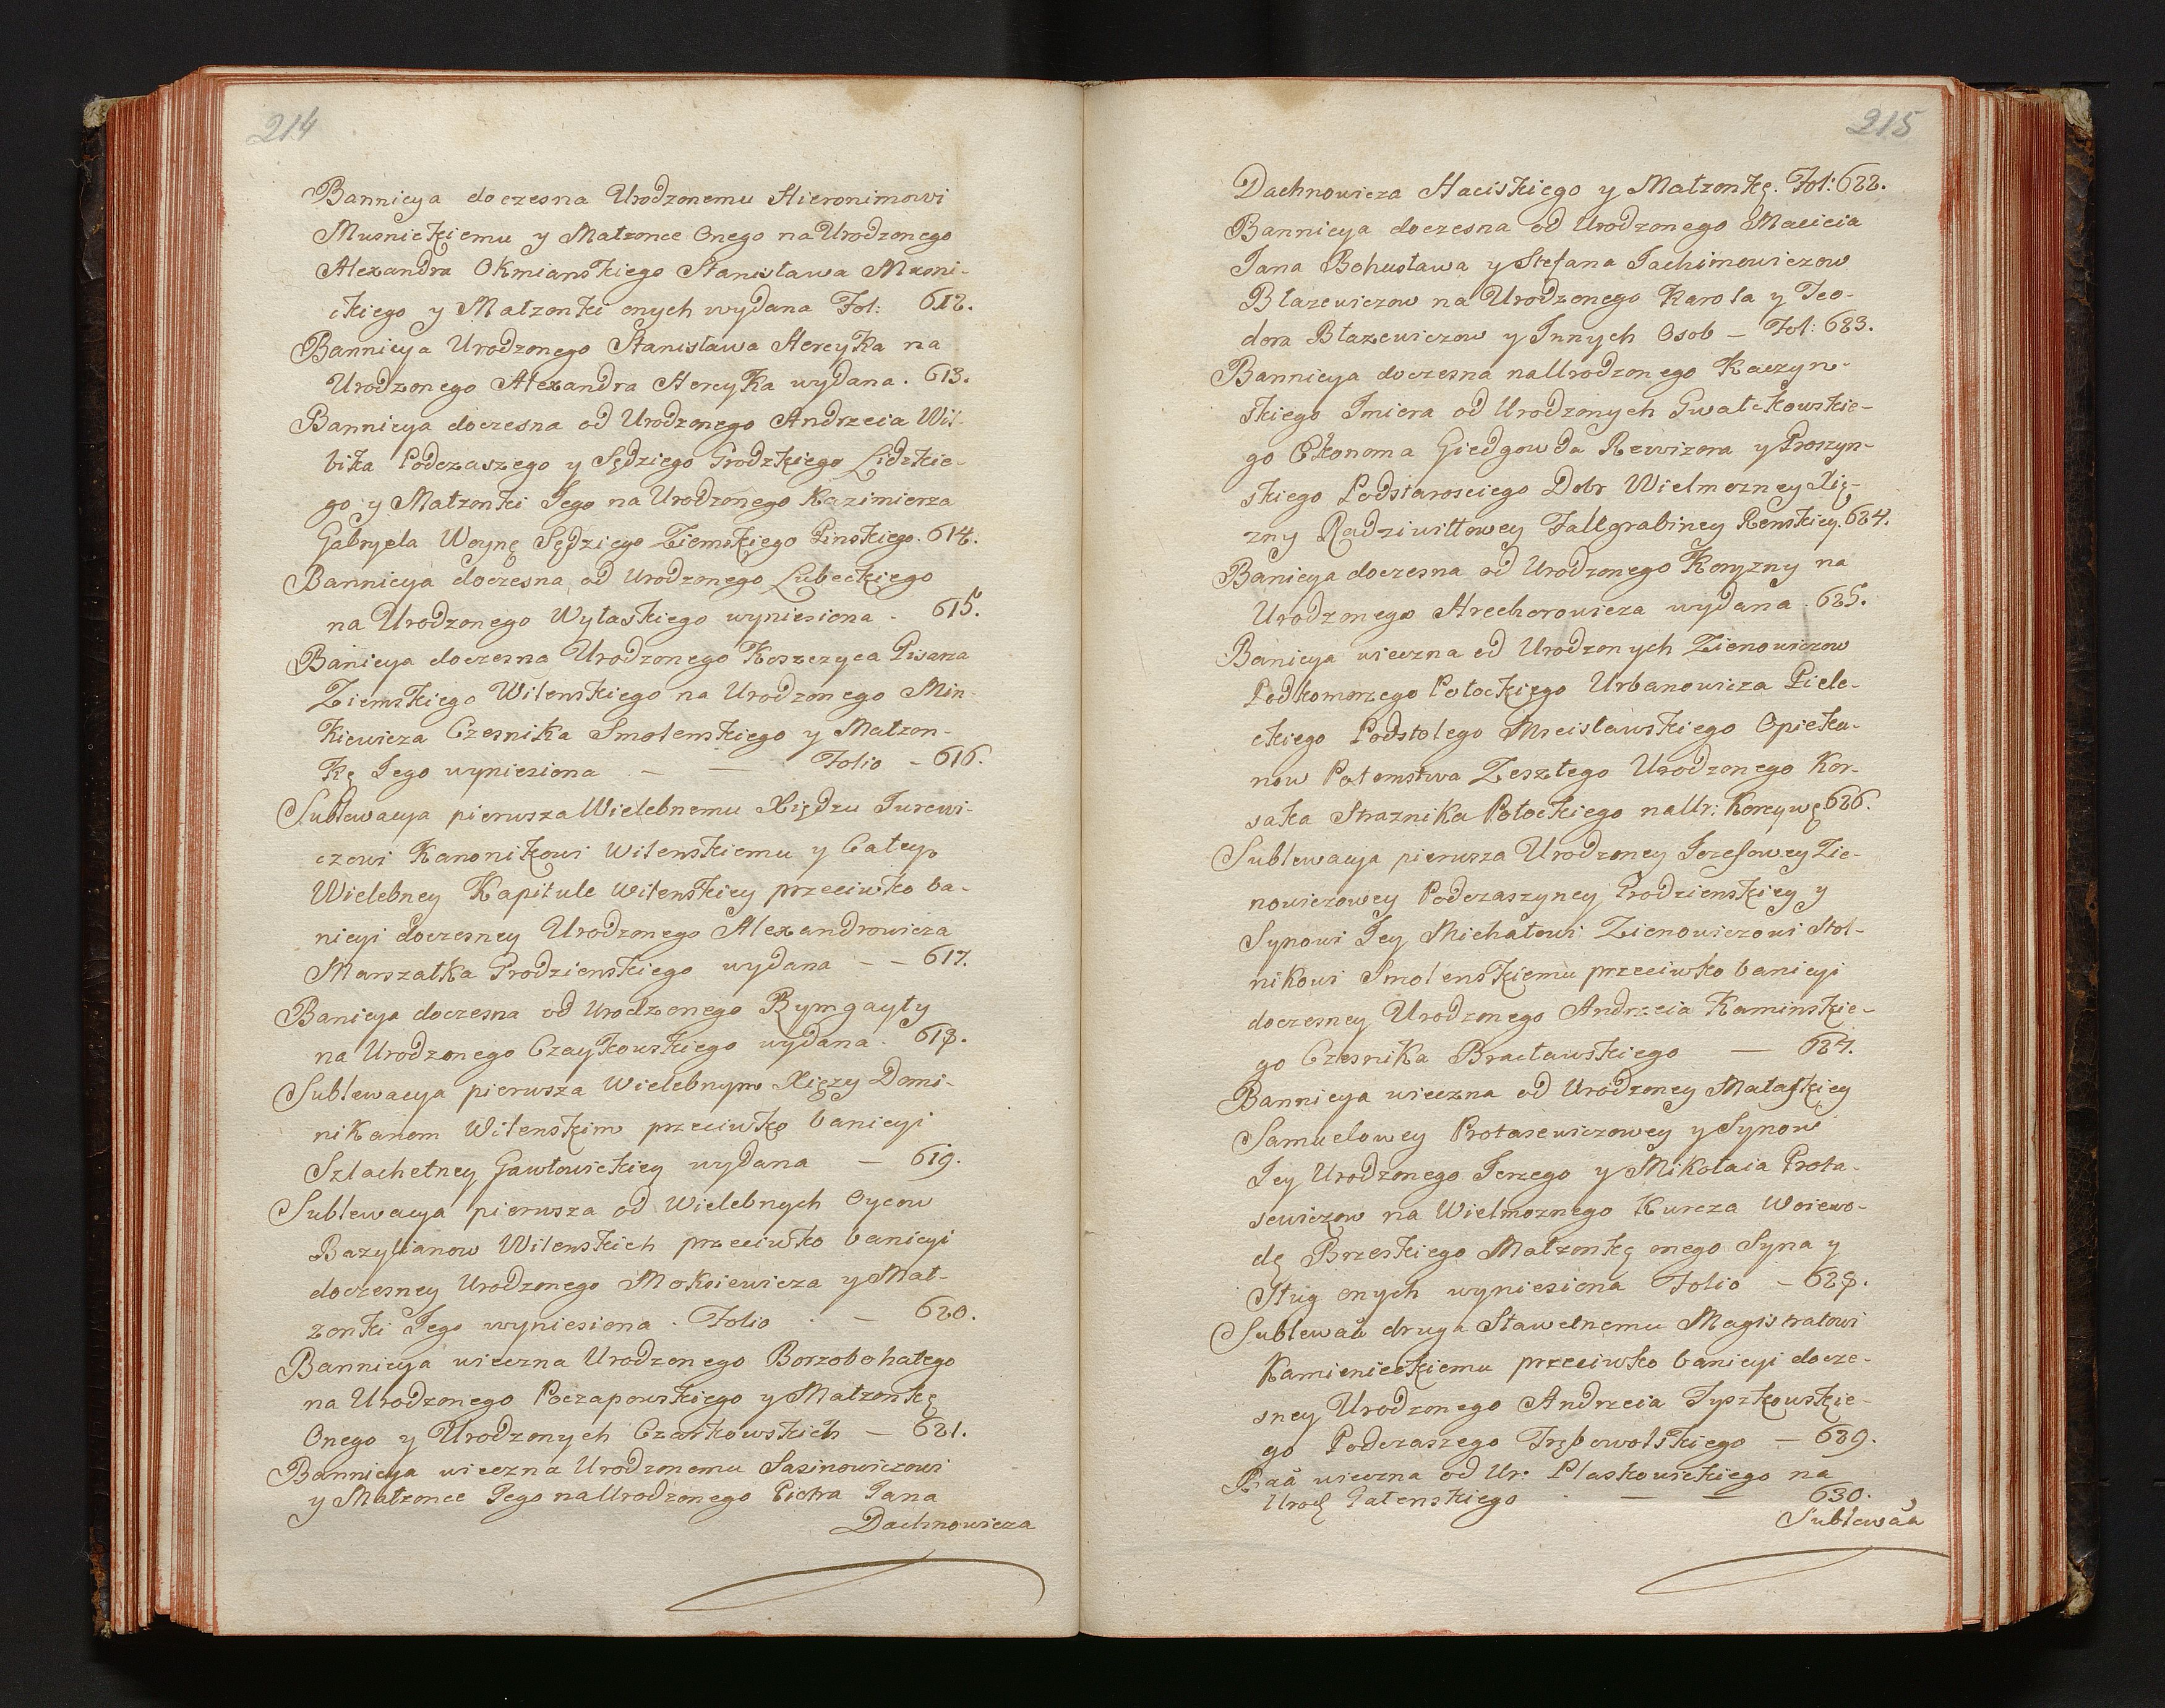 214
Bannicya doczesna Urodzonemu Hieronimowi
Musnickiemu y Małzonce Onego na Urodzonego
Alexandra Okmianskiego Stanisława Mroni-
ckiego y Małzonki onych wydana Fol: 612.
Bannicya Urodzonego Stanisława Hercyka na
Urodzonego Alexandra Hercyka wydana. 613.
Bannicya doczesna od Urodzonego Andrzeia Wil-
bika Podczaszego y Sędziego Grodzkiego Lidzkie-
go y Małzonki Iego na Urodzonego Kazimierza
Gabryela Woynę Sędziego Ziemskiego Pinskiego. 614.
Bannicya doczesna od Urodzonego Lubeckiego
na Urodzonego Wyłaskiego wyniesiona - 615.
Banicya doczesna Urodzonego Koszczyca Pisarza
Ziemskiego Wilenskiego na Urodzonego Min-
kiewicza Czesnika Smolenskiego y Małzon-
kę Iego wyniesiona — — Folio - 616.
Sublewacya pierwsza Wielebnemu Xiędzu Iurewi-
czowi Kanonikowi Wilenskiemu y Całey
Wielebney Kapitule Wilenskiey przeciwko ba-
nicyi doczesney Urodzonego Alexandrowicza
Marszałka Grodzienskiego wydana - - 617.
Banicya doczesna od Urodzonego Rymgayły
na Urodzonego Czaykowskiego wydana - 618.
Sublewacya pierwsza Wielebnym Xięzy Domi-
nikanom Wilenskim przeciwko banicyi
Szlachetney Gawłowickiey wydana — 619.
Sublewacya pierwsza od Wielebnych Oycow
Bazylianow Wilenskich przeciwko banicyi
doczesney Urodzonego Moksiewicza y Mał-
zonki Iego wyniesiona . Folio . — 620.
Bannicya wieczna Urodzonego Borzobohatego
na Urodzonego Poczapowskiego y Małzonkę
Onego y Urodzonych Czarkowskich — 621.
Bannicya wieczna Urodzonemu Sasinowiczowi
y Małzonce Iego na Urodzonego Piotra Iana
Dachnowicza
215
Dachnowicza Haciskiego y Małzonkę. Fol: 622.
Bannicya doczesna od Urodzonego Macieia
Iana Bohusława y Stefana Iachimowiczow
Błazewiczow na Urodzonego Karola y Teo-
dora Błazewiczow y Innych Osob — Fol: 623.
Bannicya doczesna na Urodzonego Kaczyn-
skiego Imiera od Urodzonych Gwałtkowskie-
go Ekonoma Giedgowda Rewizora y Proszyn-
skiego Podstarosciego Dobr Wielmozney Xię-
zny Radziwiłłowey Fallgrabiney Renskiey. 624.
Banicya doczesna od Urodzonego Koryzny na
Urodzonego Hrechorowicza wydana . 625.
Banicya wieczna od Urodzonych Zienowiczow
Podkomorzego Połockiego Urbanowicza Piele-
ckiego Podstolego Mscisławskiego Opieku-
now Potomstwa Zeszłego Urodzonego Kor-
saka Straznika Połockiego na Ur: Korcywę 626.
Sublewacya pierwsza Urodzoney Iozefowey Zie-
nowiczowey Podczaszyney Grodzienskiey y
Synowi Iey Michałowi Zienowiczowi Stol-
nikowi Smolenskiemu przeciwko banicyi
doczesney Urodzonego Andrzeia Kaminskie-
go Czesnika Bracławskiego — 627.
Bannicya wieczna od Urodzoney Małaskiey
Samuelowey Protasewiczowey y Synow
Iey Urodzonego Ierzego y Mikołaia Prota-
sewiczow na Wielmoznego Kurcza Woiewo-
dę Brzeskiego Małzonkę onego Syna y
Sług onych wyniesiona Folio - 628.
Sublewaa druga Sławetnemu Magistratowi
Kamienieckiemu przeciwko banicyi docze-
sney Urodzonego Andrzeia Tyszkowskie-
go Podczaszego Trębowolskiego — 629.
Baa wieczna od Ur: Plaskowickiego na
Urodz Gałenskiego . — — 630.
Sublewaa